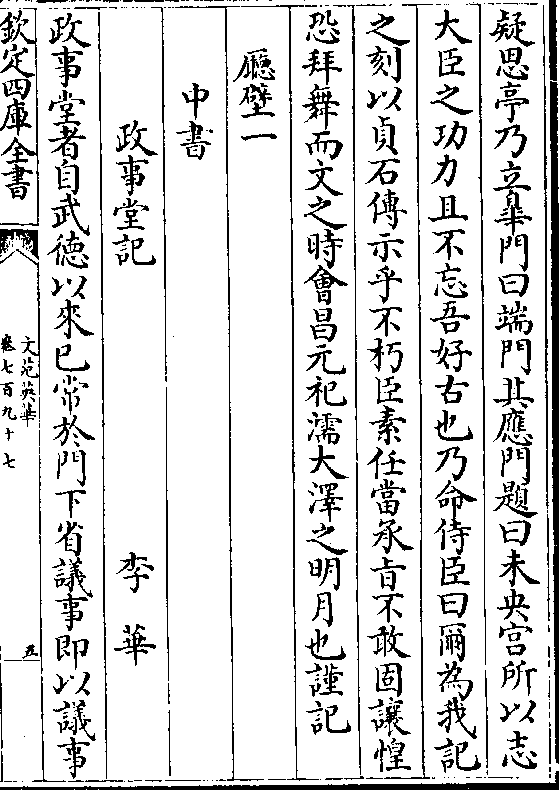 疑思亭乃立皐門曰端門其應門題曰未央宫所以志
大臣之功力且不忘吾好古也乃命侍臣曰爾為我記
之刻以貞石傳示乎不朽臣素任當承㫖不敢固讓惶
恐拜舞而文之時會昌元祀濡大澤之明月也謹記
廳壁一
中書
政事堂記 李華
政事堂者自武德以來已常於門下省議事即以議事
欽定四庫全書
文苑英華
卷七百九十七
五